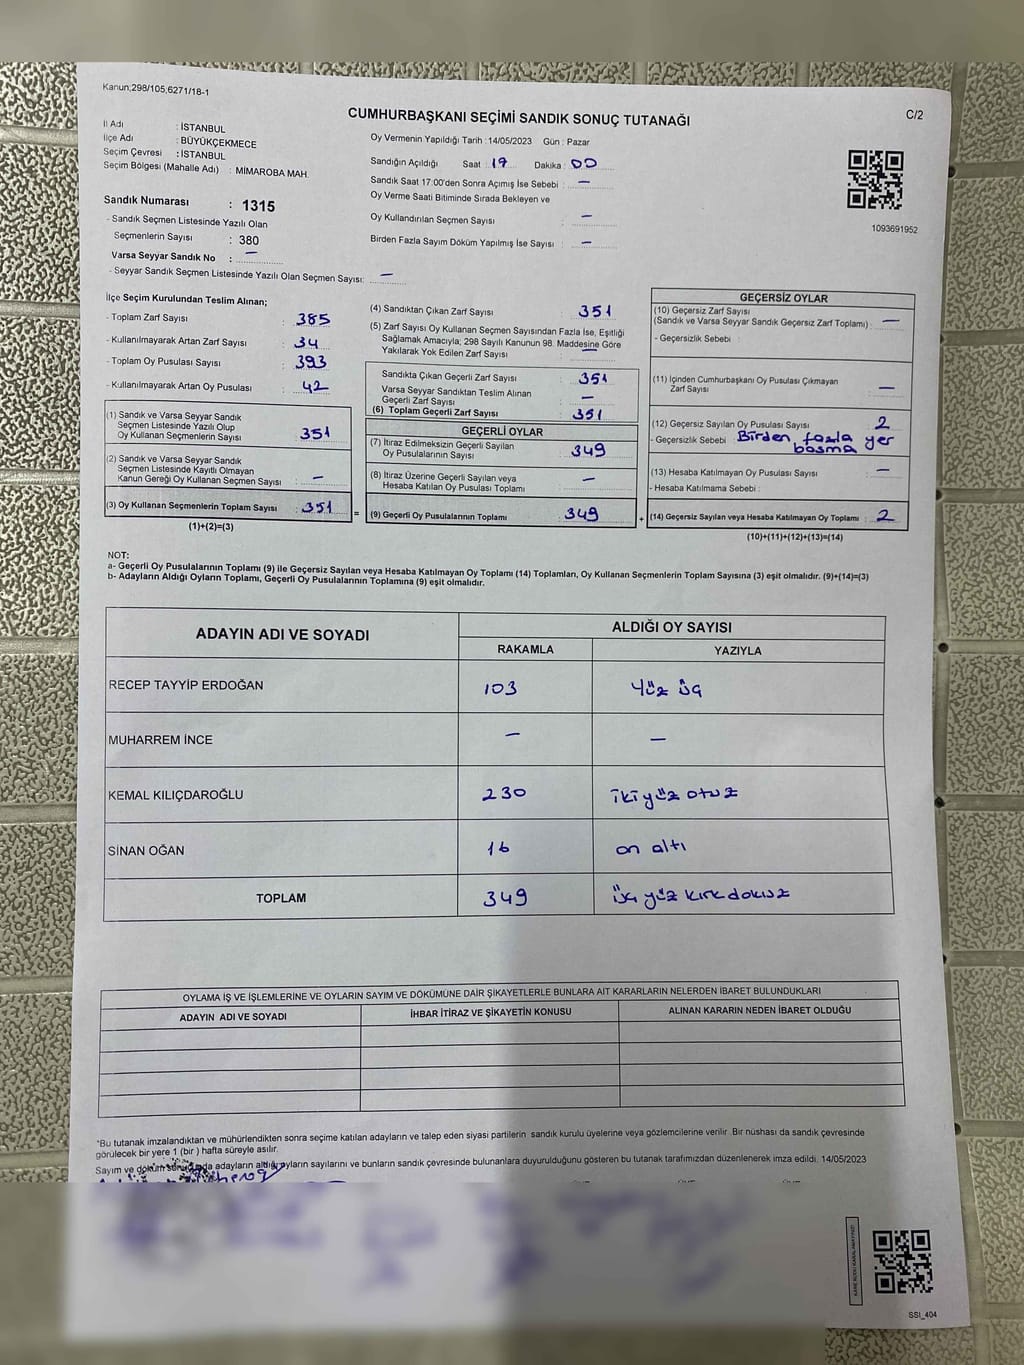 Kanun,298/105,6271/18-1
C/2
CUMHURBAŞKANI SEÇİMİ SANDIK SONUÇ TUTANAĞI
İl Adı : İSTANBUL
İlçe Adı : BÜYÜKÇEKMECE
Seçim Çevresi : İSTANBUL
Seçim Bölgesi (Mahalle Adı) : MİMAROBA MAH.
Sandık Numarası : 1315
- Sandık Seçmen Listesinde Yazılı Olan
Seçmenlerin Sayısı : 380
Varsa Seyyar Sandık No : —
- Seyyar Sandık Seçmen Listesinde Yazılı Olan Seçmen Sayısı: —
Oy Vermenin Yapıldığı Tarih : 14/05/2023 Gün : Pazar
Sandığın Açıldığı Saat : 17 Dakika : 00
Sandık Saat 17:00'den Sonra Açımış İse Sebebi : —
Oy Verme Saati Bitiminde Sırada Bekleyen ve
Oy Kullandırılan Seçmen Sayısı : —
Birden Fazla Sayım Döküm Yapılmış İse Sayısı : —
1093691952
İlçe Seçim Kurulundan Teslim Alınan;
- Toplam Zarf Sayısı : 385
- Kullanılmayarak Artan Zarf Sayısı : 34
- Toplam Oy Pusulası Sayısı : 393
- Kullanılmayarak Artan Oy Pusulası : 42
(1) Sandık ve Varsa Seyyar Sandık
Seçmen Listesinde Yazılı Olup
Oy Kullanan Seçmenlerin Sayısı : 351
(2) Sandık ve Varsa Seyyar Sandık
Seçmen Listesinde Kayıtlı Olmayan
Kanun Gereği Oy Kullanan Seçmen Sayısı : —
(3) Oy Kullanan Seçmenlerin Toplam Sayısı : 351
(1)+(2)=(3)
(4) Sandıktan Çıkan Zarf Sayısı : 351
(5) Zarf Sayısı Oy Kullanan Seçmen Sayısından Fazla İse, Eşitliği
Sağlamak Amacıyla; 298 Sayılı Kanunun 98. Maddesine Göre
Yakılarak Yok Edilen Zarf Sayısı : —
Sandıkta Çıkan Geçerli Zarf Sayısı : 351
Varsa Seyyar Sandıktan Teslim Alınan
Geçerli Zarf Sayısı : —
(6) Toplam Geçerli Zarf Sayısı : 351
GEÇERLİ OYLAR
(7) İtiraz Edilmeksizin Geçerli Sayılan
Oy Pusulalarının Sayısı : 349
(8) İtiraz Üzerine Geçerli Sayılan veya
Hesaba Katılan Oy Pusulası Toplamı : —
= (9) Geçerli Oy Pusulalarının Toplamı : 349
GEÇERSİZ OYLAR
(10) Geçersiz Zarf Sayısı
(Sandık ve Varsa Seyyar Sandık Geçersiz Zarf Toplamı) : —
- Geçersizlik Sebebi :
(11) İçinden Cumhurbaşkanı Oy Pusulası Çıkmayan
Zarf Sayısı : —
(12) Geçersiz Sayılan Oy Pusulası Sayısı : 2
- Geçersizlik Sebebi : Birden fazla yer
basma
(13) Hesaba Katılmayan Oy Pusulası Sayısı : —
- Hesaba Katılmama Sebebi :
+ (14) Geçersiz Sayılan veya Hesaba Katılmayan Oy Toplamı : 2
(10)+(11)+(12)+(13)=(14)
NOT:
a- Geçerli Oy Pusulalarının Toplamı (9) ile Geçersiz Sayılan veya Hesaba Katılmayan Oy Toplamı (14) Toplamları, Oy Kullanan Seçmenlerin Toplam Sayısına (3) eşit olmalıdır. (9)+(14)=(3)
b- Adayların Aldığı Oyların Toplamı, Geçerli Oy Pusulalarının Toplamına (9) eşit olmalıdır.
ADAYIN ADI VE SOYADI ALDIĞI OY SAYISI
RAKAMLA YAZIYLA
RECEP TAYYİP ERDOĞAN 103 Yüz üç
MUHARREM İNCE — —
KEMAL KILIÇDAROĞLU 230 iki yüz otuz
SİNAN OĞAN 16 on altı
TOPLAM 349 üç yüz kırk dokuz
OYLAMA İŞ VE İŞLEMLERİNE VE OYLARIN SAYIM VE DÖKÜMÜNE DAİR ŞİKAYETLERLE BUNLARA AİT KARARLARIN NELERDEN İBARET BULUNDUKLARI
ADAYIN ADI VE SOYADI İHBAR İTİRAZ VE ŞİKAYETİN KONUSU ALINAN KARARIN NEDEN İBARET OLDUĞU
*Bu tutanak imzalandıktan ve mühürlendikten sonra seçime katılan adayların ve talep eden siyasi partilerin sandık kurulu üyelerine veya gözlemcilerine verilir. Bir nüshası da sandık çevresinde
görülecek bir yere 1 (bir ) hafta süreyle asılır.
Sayım ve döküm sonucunda adayların aldığı oyların sayılarını ve bunların sandık çevresinde bulunanlara duyurulduğunu gösteren bu tutanak tarafımızdan düzenlenerek imza edildi. 14/05/2023
SSI_404